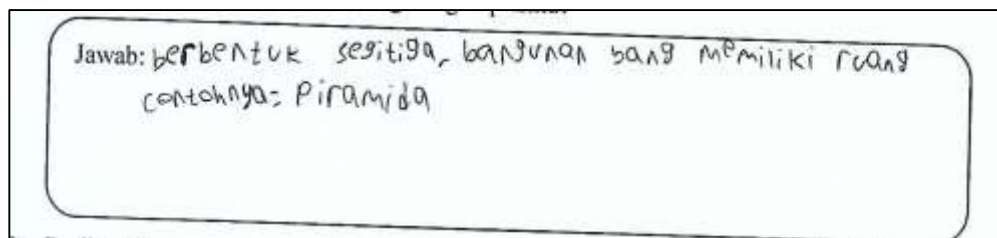 Jawab: berbentuk segitiga, bangunan yang memiliki ruang
contohnya: Piramida